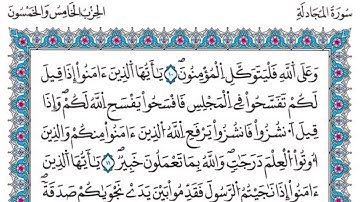 سُورَةُ المُجَادلَةِ
الحِزْبُ الخَامِسُ وَالخَمْسُونَ
وَعَلَى اَ۬للَّهِ فَلْيَتَوَكَّلِ اِ۬لْمُؤْمِنُونَۖ ١٠ يَٰٓأَيُّهَا اَ۬لذِينَ ءَامَنُوٓاْ إِذَا قِيلَ
لَكُمْ تَفَسَّحُواْ فِے اِ۬لْمَجْلِسِ فَافْسَحُواْ يَفْسَحِ اِ۬للَّهُ لَكُمْۖ وَإِذَا
قِيلَ اَ۟نشُزُواْ فَانشُزُواْ يَرْفَعِ اِ۬للَّهُ اُ۬لذِينَ ءَامَنُواْ مِنكُمْ وَالذِينَ
أُوتُواْ اُ۬لْعِلْمَ دَرَجَٰتٖۖ وَاللَّهُ بِمَا تَعْمَلُونَ خَبِيرٞۖ يَٰٓأَيُّهَا اَ۬لذِينَ
ءَامَنُوٓاْ إِذَا نَٰجَيْتُمُ اُ۬لرَّسُولَ فَقَدِّمُواْ بَيْنَ يَدَےْ نَجْوَيٰكُمْ صَدَقَةٗۖ